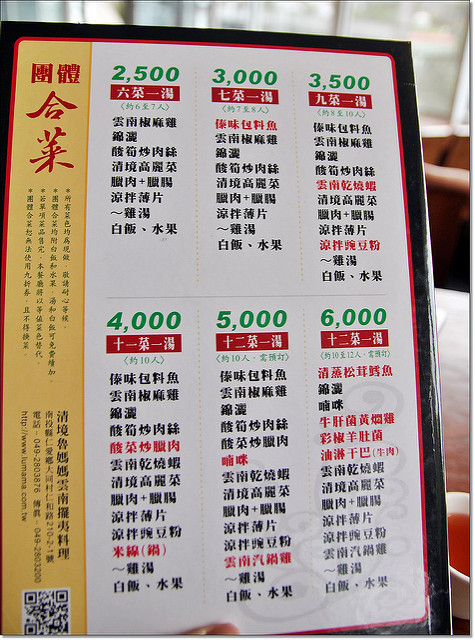 團體
合菜
*所有菜色均為現做，敬請耐心等候。
*團體合菜均附白飯和水果，湯和白飯可免費續加。
*若單項菜品售完，本餐廳將以等值菜色替代。
*團體合菜恕無法使用九折券，且不得換菜。
清境魯媽媽雲南擺夷料理
南投縣仁愛鄉大同村仁和路210-2-1號
電話：049-2803876 傳真：049-2803200
http://www.lumama.com.tw
2,500
六菜一湯
(約6至7人)
雲南椒麻雞
錦灑
酸筍炒肉絲
清境高麗菜
臘肉+臘腸
涼拌薄片
～雞湯
白飯、水果
3,000
七菜一湯
(約7至8人)
傣味包料魚
雲南椒麻雞
錦灑
酸筍炒肉絲
清境高麗菜
臘肉+臘腸
涼拌薄片
～雞湯
白飯、水果
3,500
九菜一湯
(約8至10人)
傣味包料魚
雲南椒麻雞
錦灑
酸筍炒肉絲
雲南乾燒蝦
清境高麗菜
臘肉+臘腸
涼拌薄片
涼拌豌豆粉
～雞湯
白飯、水果
4,000
十一菜一湯
(約10人)
傣味包料魚
雲南椒麻雞
錦灑
酸筍炒肉絲
酸菜炒臘肉
雲南乾燒蝦
清境高麗菜
臘肉+臘腸
涼拌薄片
涼拌豌豆粉
米線(鍋)
～雞湯
白飯、水果
5,000
十二菜一湯
(約10人，需預訂)
傣味包料魚
雲南椒麻雞
錦灑
酸筍炒肉絲
酸菜炒臘肉
喃咪
雲南乾燒蝦
清境高麗菜
臘肉+臘腸
涼拌薄片
涼拌豌豆粉
雲南汽鍋雞
～雞湯
白飯、水果
6,000
十二菜一湯
(約10至12人，需預訂)
清蒸松茸鱈魚
錦灑
喃咪
牛肝菌黃燜雞
彩椒羊肚菌
油淋干巴(牛肉)
雲南乾燒蝦
清境高麗菜
臘肉+臘腸
涼拌薄片
涼拌豌豆粉
雲南汽鍋雞
～雞湯
白飯、水果